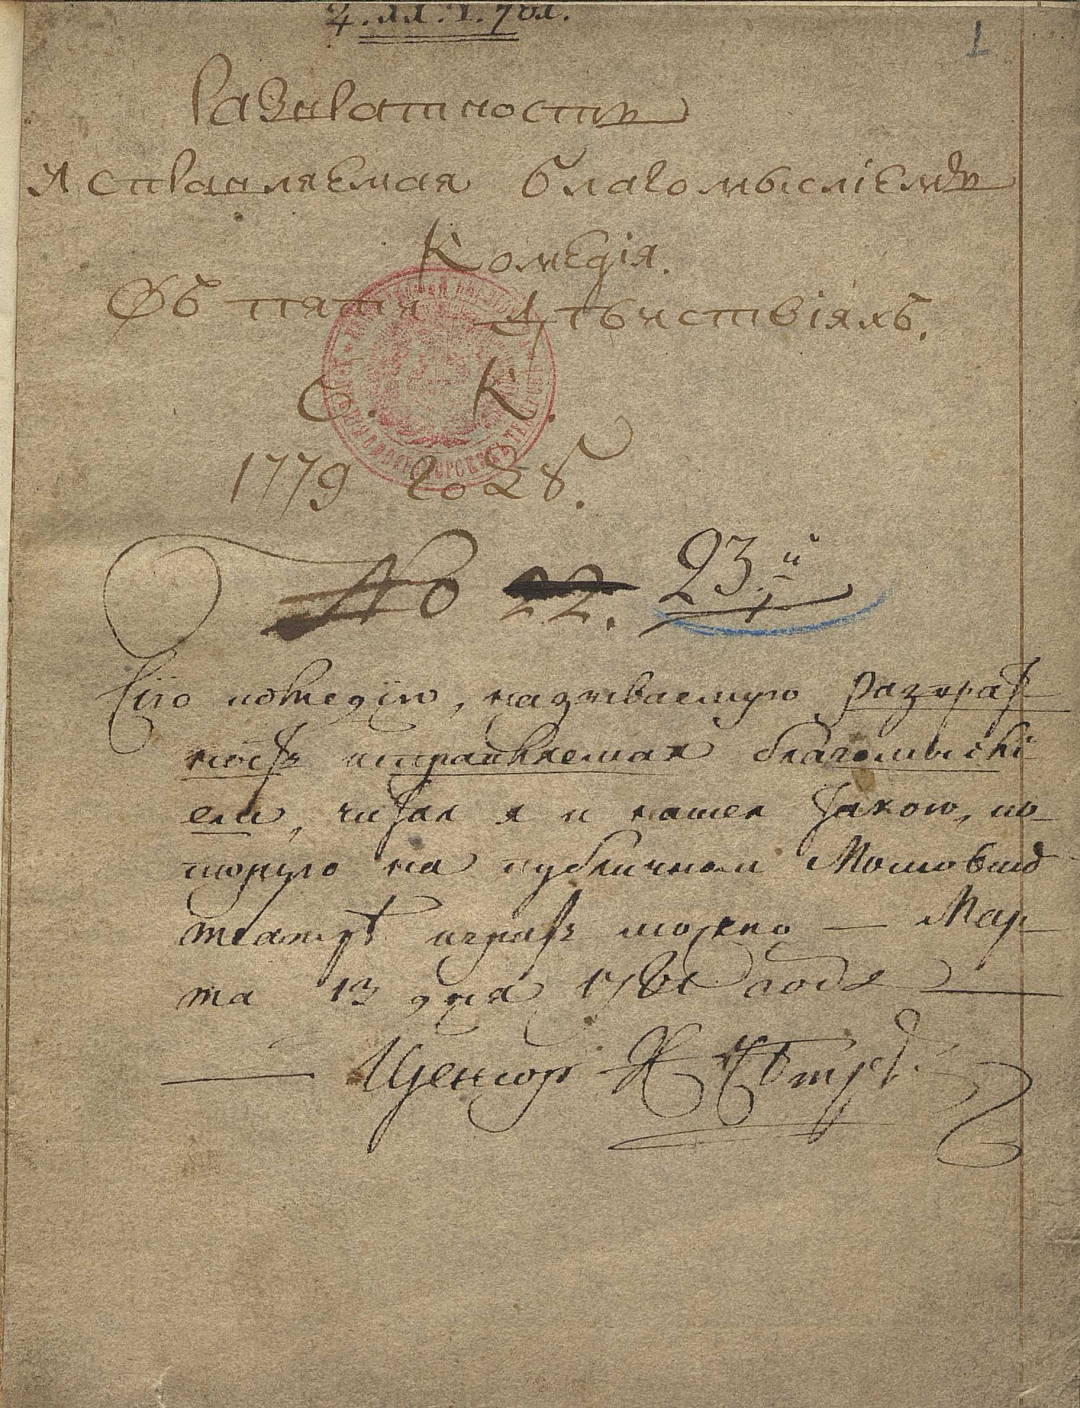 1
Развратность
Исправляемая благомысліемъ
Комедія.
Въ пяти Дѣйствіяхъ.
С. К.
1779 Году.
No 22. 23.й
Сію комедію, называемую Разврат
ность исправляемая благомыслі
ем, читал я и нашел такою, ко
торую на публичном Московском
театрѣ играть можно — Мар
та 13 дня 1781 года —
— Ценсор